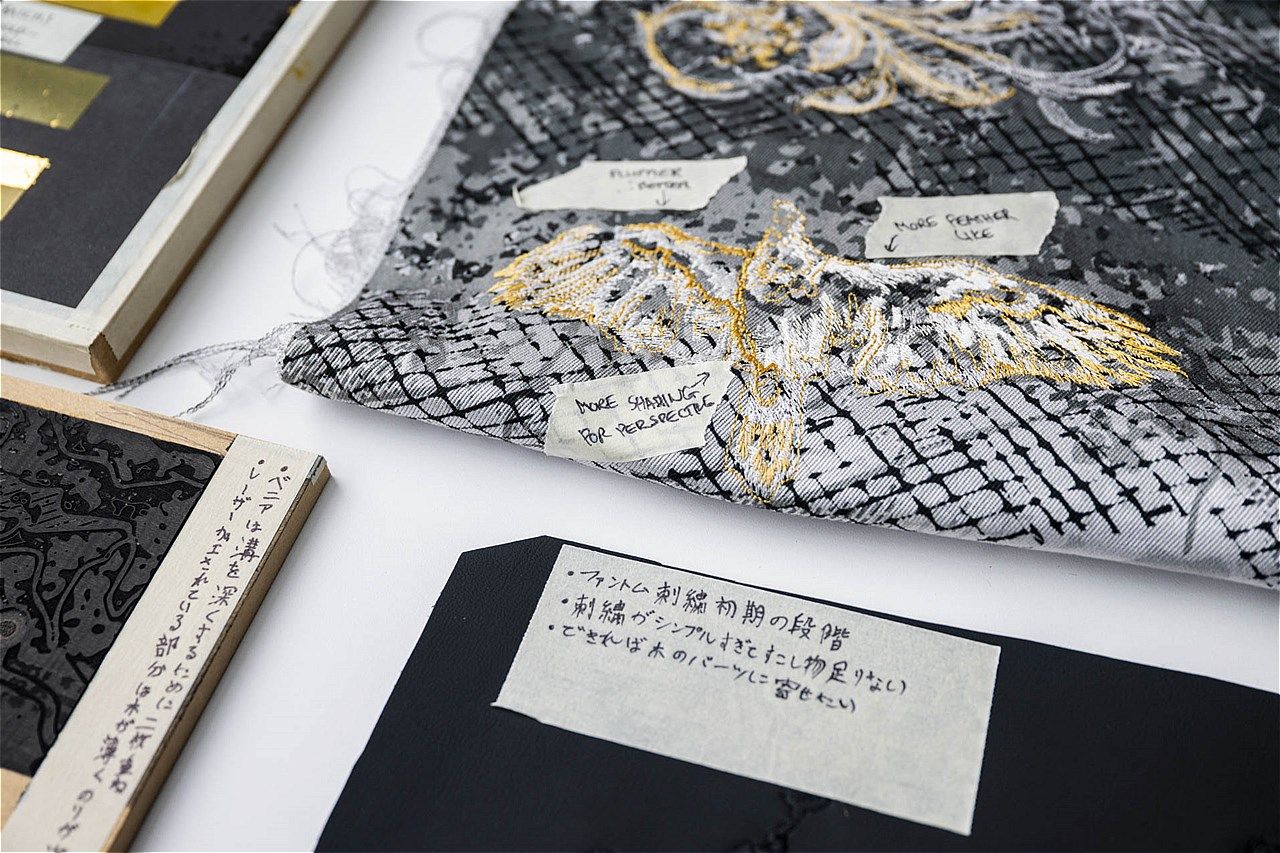 FLUFFIER
BOTTOM
MORE FEATHER
LIKE
MORE SHADING
FOR PERSPECTIVE
・ベニアは溝を深くするために二枚重ね
・レーザー加工されている部分は木が薄くのりが
・ファントム刺繍初期の段階
・刺繍がシンプルすぎてすこし物足りない
・できれば木のパーツに寄せたい